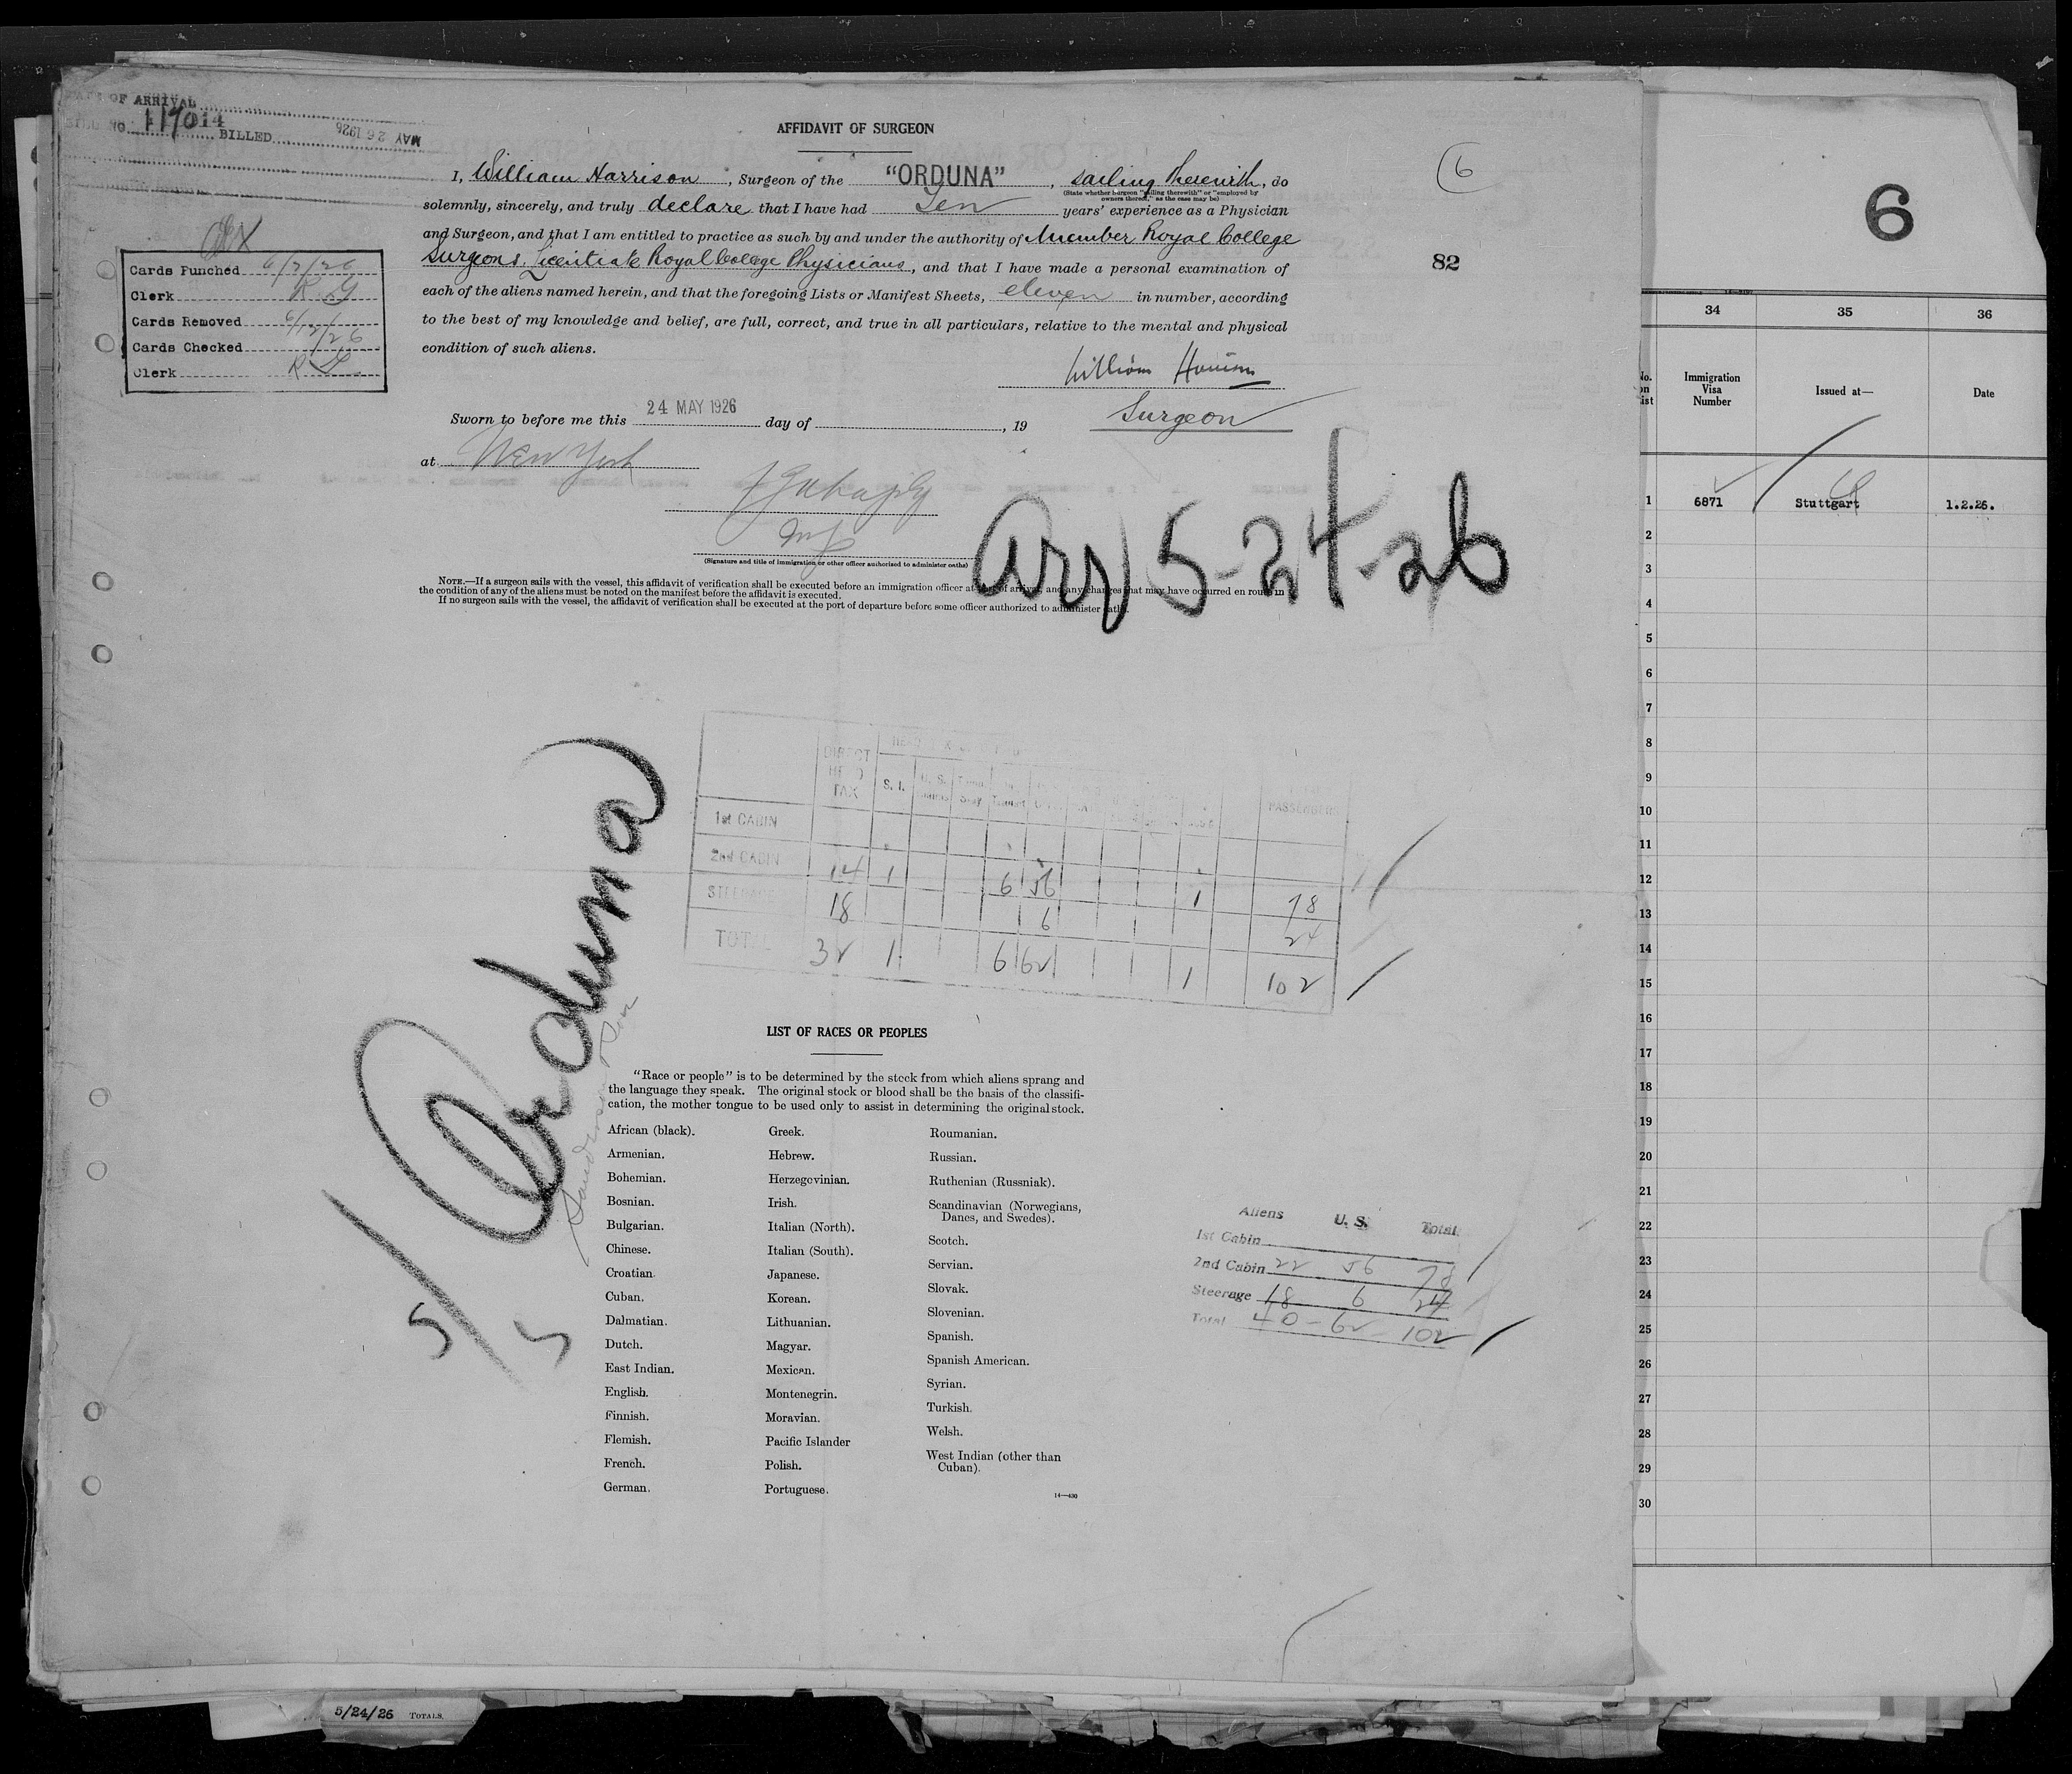 OF ARRIVAL
BILL NO. 117014 BILLED MAY 26 1926
AFFIDAVIT OF SURGEON
6
I, William Harrison, Surgeon of the "ORDUNA", sailing therewith, do
(State whether surgeon "sailing therewith" or "employed by
owners thereof," as the case may be)
solemnly, sincerely, and truly declare that I have had Ten years' experience as a Physician
and Surgeon, and that I am entitled to practice as such by and under the authority of Member Royal College
Surgeons. Licentiate Royal College Physicians, and that I have made a personal examination of
each of the aliens named herein, and that the foregoing Lists or Manifest Sheets, eleven in number, according
to the best of my knowledge and belief, are full, correct, and true in all particulars, relative to the mental and physical
condition of such aliens.
82
Cards Punched 6/7/26
Clerk R G
Cards Removed 6/12/26
Cards Checked
Clerk R G
William Harrison
Surgeon
Sworn to before me this 24 MAY 1926 day of , 19
at New York
(Signature and title of immigration or other officer authorized to administer oaths)
Arr 5-24-26
NOTE.—If a surgeon sails with the vessel, this affidavit of verification shall be executed before an immigration officer at of arrival, and any changes that may have occurred en route in
the condition of any of the aliens must be noted on the manifest before the affidavit is executed.
If no surgeon sails with the vessel, the affidavit of verification shall be executed at the port of departure before some officer authorized to administer oaths.
Orduna
5
5
DIRECT HEAD TAX S. I. U. S. PASSENGERS
1st CABIN
2nd CABIN 14 1 6 56 1 78
STEERAGE 18 6 24
TOTAL 32 1 6 62 1 102
LIST OF RACES OR PEOPLES
"Race or people" is to be determined by the stock from which aliens sprang and
the language they speak. The original stock or blood shall be the basis of the classifi-
cation, the mother tongue to be used only to assist in determining the original stock.
African (black).
Armenian.
Bohemian.
Bosnian.
Bulgarian.
Chinese.
Croatian.
Cuban.
Dalmatian.
Dutch.
East Indian.
English.
Finnish.
Flemish.
French.
German.
Greek.
Hebrew.
Herzegovinian.
Irish.
Italian (North).
Italian (South).
Japanese.
Korean.
Lithuanian.
Magyar.
Mexican.
Montenegrin.
Moravian.
Pacific Islander
Polish.
Portuguese.
Roumanian.
Russian.
Ruthenian (Russniak).
Scandinavian (Norwegians,
Danes, and Swedes).
Scotch.
Servian.
Slovak.
Slovenian.
Spanish.
Spanish American.
Syrian.
Turkish.
Welsh.
West Indian (other than
Cuban).
14—430
Aliens U. S. Total
1st Cabin
2nd Cabin 22 56 78
Steerage 18 6 24
Total 40 - 62 - 102
5/24/26 TOTALS.
6
34 35 36
No. on list
Immigration Visa Number
Issued at—
Date
1 6871 Stuttgart 1.2.26.
2
3
4
5
6
7
8
9
10
11
12
13
14
15
16
17
18
19
20
21
22
23
24
25
26
27
28
29
30